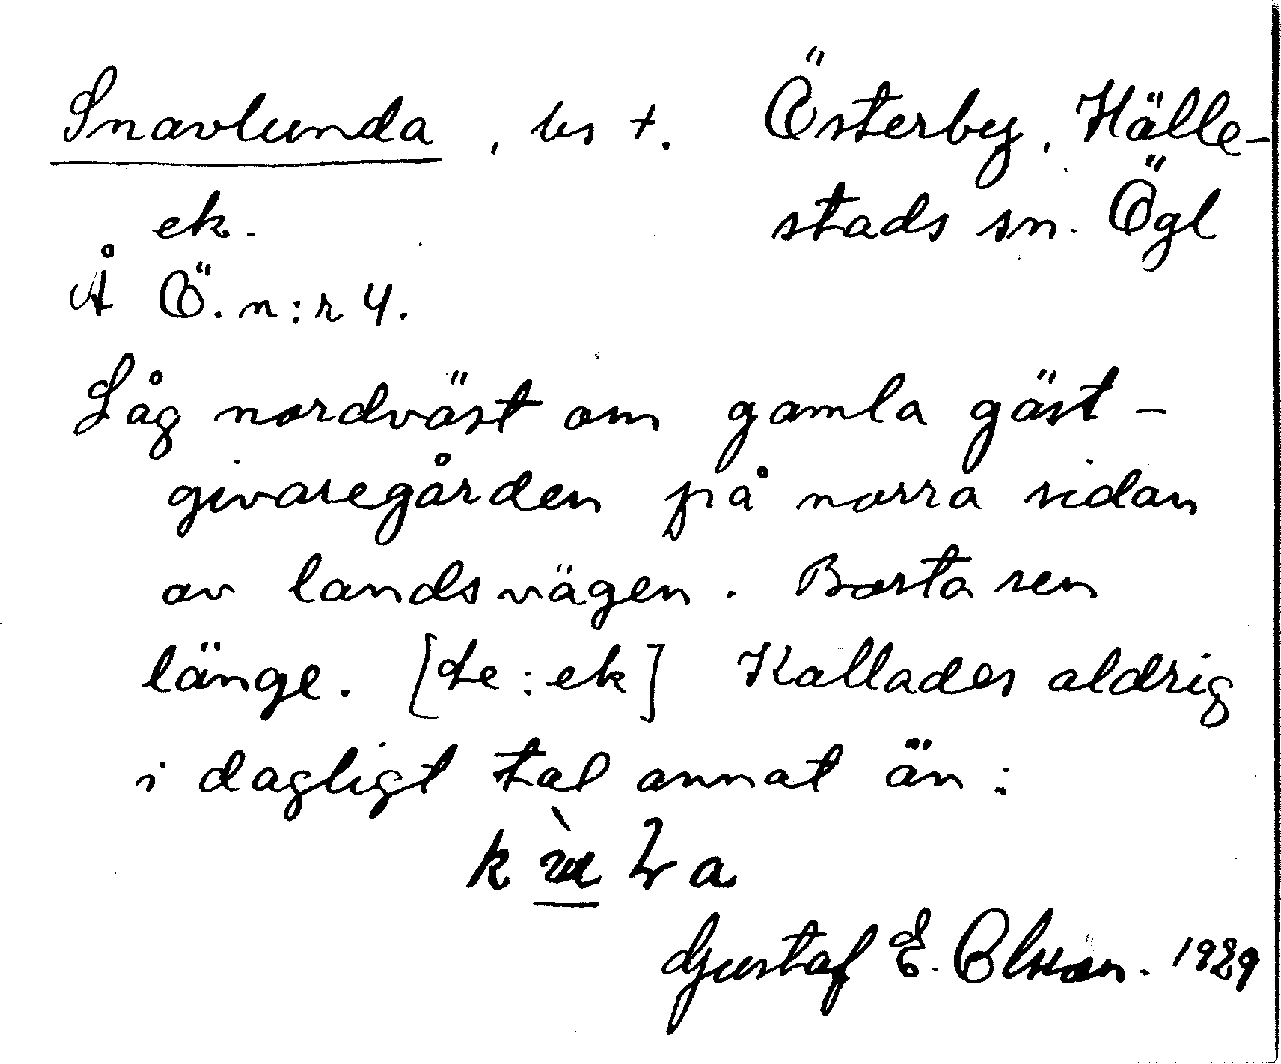 Snavlunda, bs †. Österby, Hälle-
ek. stads sn. Ögl
Å Ö. n:r 4.
Låg nordväst om gamla gäst-
givaregården på norra sidan
av landsvägen. Borta sen
länge. [Se: ek] Kallades aldrig
i dagligt tal annat än:
Gustaf E. Olsson. 1929